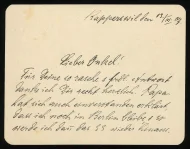 Rapperswil den 13/III 09
Lieber Onkel!
Für Deine so rasche & frdl. Antwort
danke ich Dir recht herzlich. Papa
hat sich auch einverstanden erklärt
dass ich noch in Berlin bleibe & so
werde ich dann das SS wieder